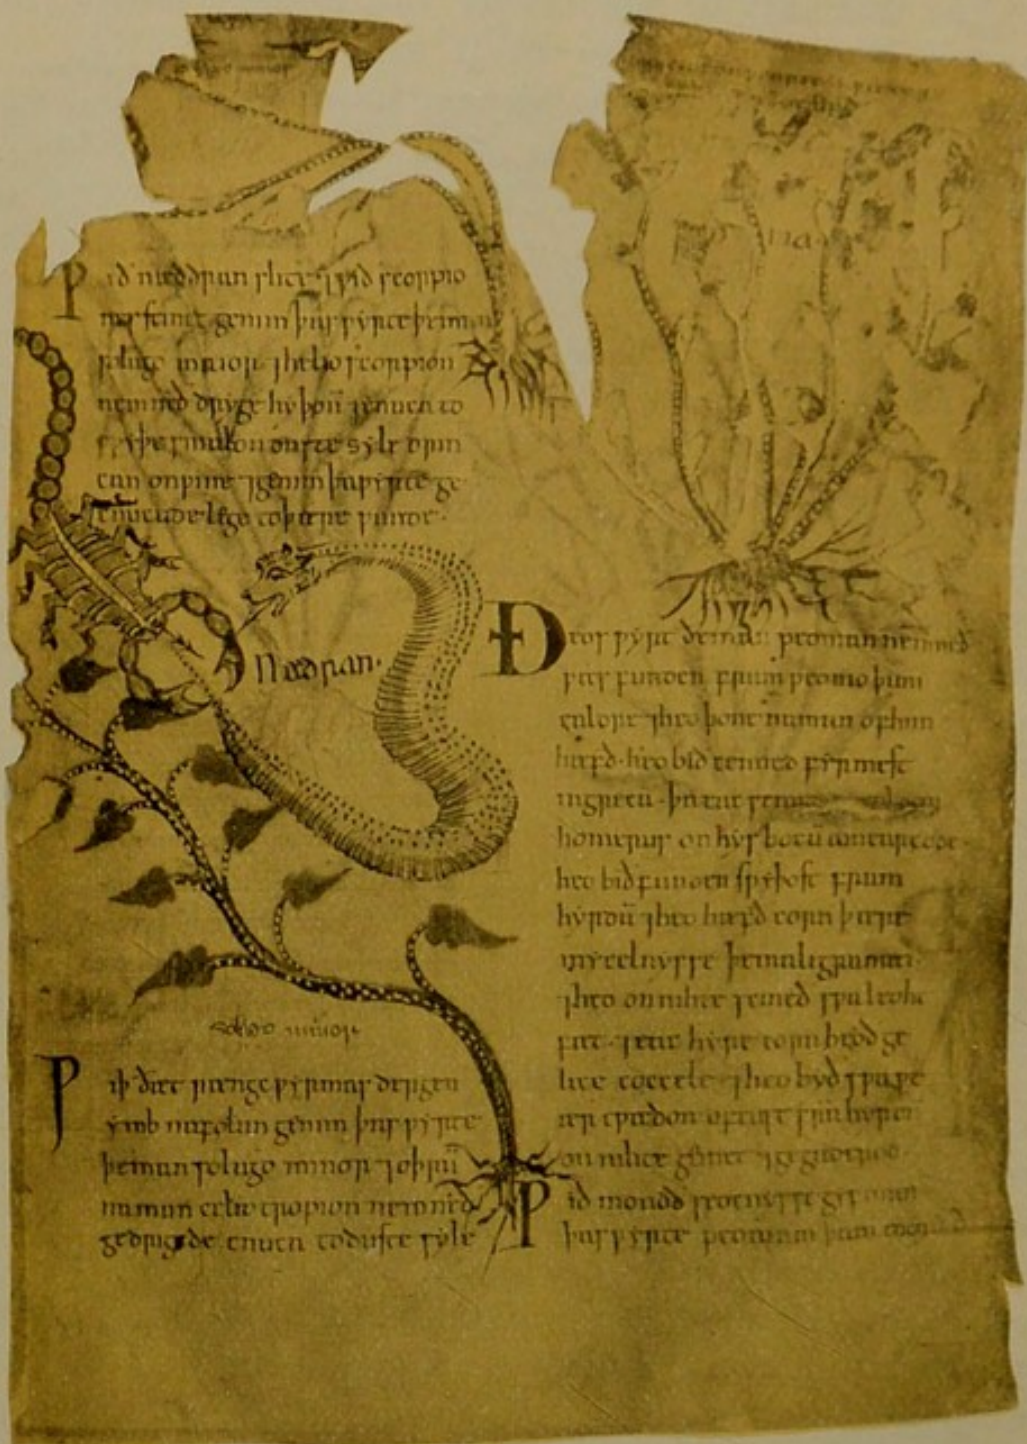 Ƿið næddran slite ⁊ wið scorpio
nes stincg genim þas wyrte þe man
solago maior ⁊ helioscorpion
nemneð dryge hy þoñ ⁊ cnuca to
swyþe smalon duste syle drin
can on wine ⁊ genim þa wyrte ge
cnucude lege to þære wunde·
Nædran·
solago minor
Ƿiþ ðæt rengcwyrmas dergen
ymb nafolan genim þas wyrte
þe man solago minor ⁊ oþrũ
naman æliotropion nemneð
gedrigede cnuca to duste syle
Ðeos wyrt ðe man peoniam nemneð
wæs funden fram peonio þam
ealdre ⁊ heo þone naman of him
hafð· heo bið cenned fyrmest
in grecu· þa eac se
homerus on hys bocū amearcode·
heo bið funden swyþost fram
hyrdū ⁊ heo hafð corn þære
mycelnysse þe mali granati·
⁊ heo on nihte scineð swa leoht
fæt· ⁊ eac hyre corn beoð ge
lice coccele ⁊ heo byð swa we
ær cwædon oftust fram hyrdū
on nihte gemet ⁊ gegaderod·
Ƿið monoð seocnysse gyf man
þas wyrte peoniam þam monoð